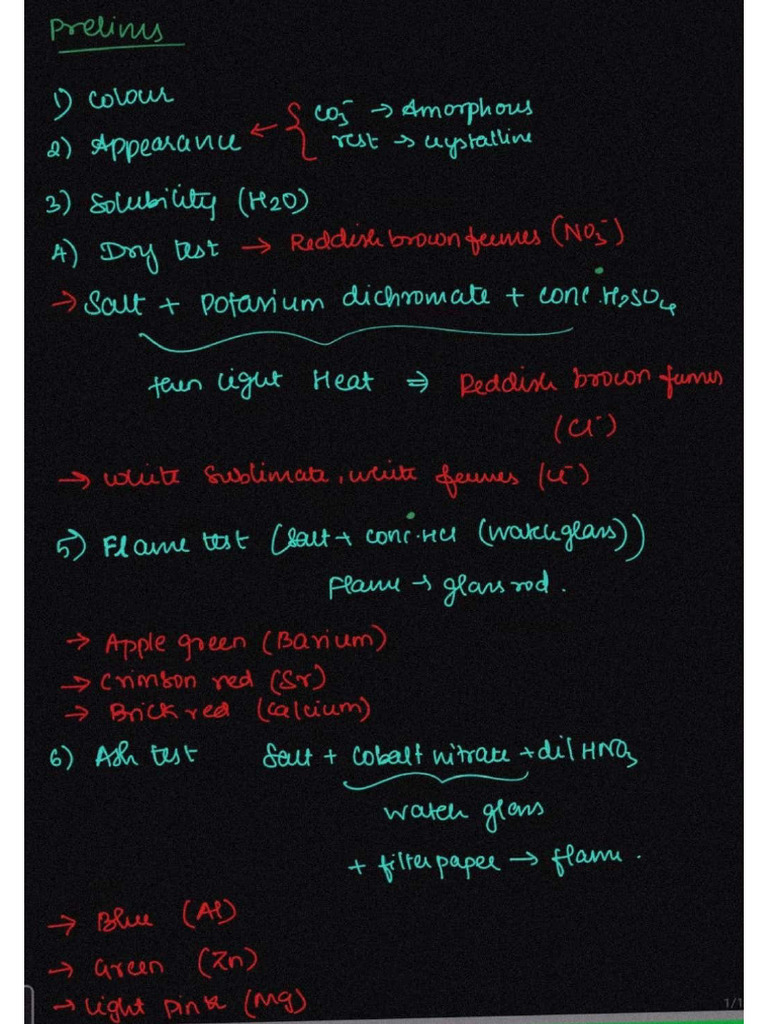 Prelims
1) Colour
2) Appearance ← { CO3⁻ → Amorphous
rest → crystalline
3) Solubility (H2O)
4) Dry test → Reddish brown fumes (NO3⁻)
→ Salt + Potassium dichromate + conc. H2SO4
then light Heat ⇒ Reddish brown fumes
(Cl⁻)
→ White sublimate, white fumes (Cl⁻)
5) Flame test (Salt + conc. HCl (watch glass))
Flame → glass rod.
→ Apple green (Barium)
→ Crimson red (Sr)
→ Brick red (Calcium)
6) Ash test Salt + cobalt nitrate + dil HNO3
watch glass
+ filter paper → flame.
→ Blue (Al)
→ Green (Zn)
→ Light pink (Mg)
1/1